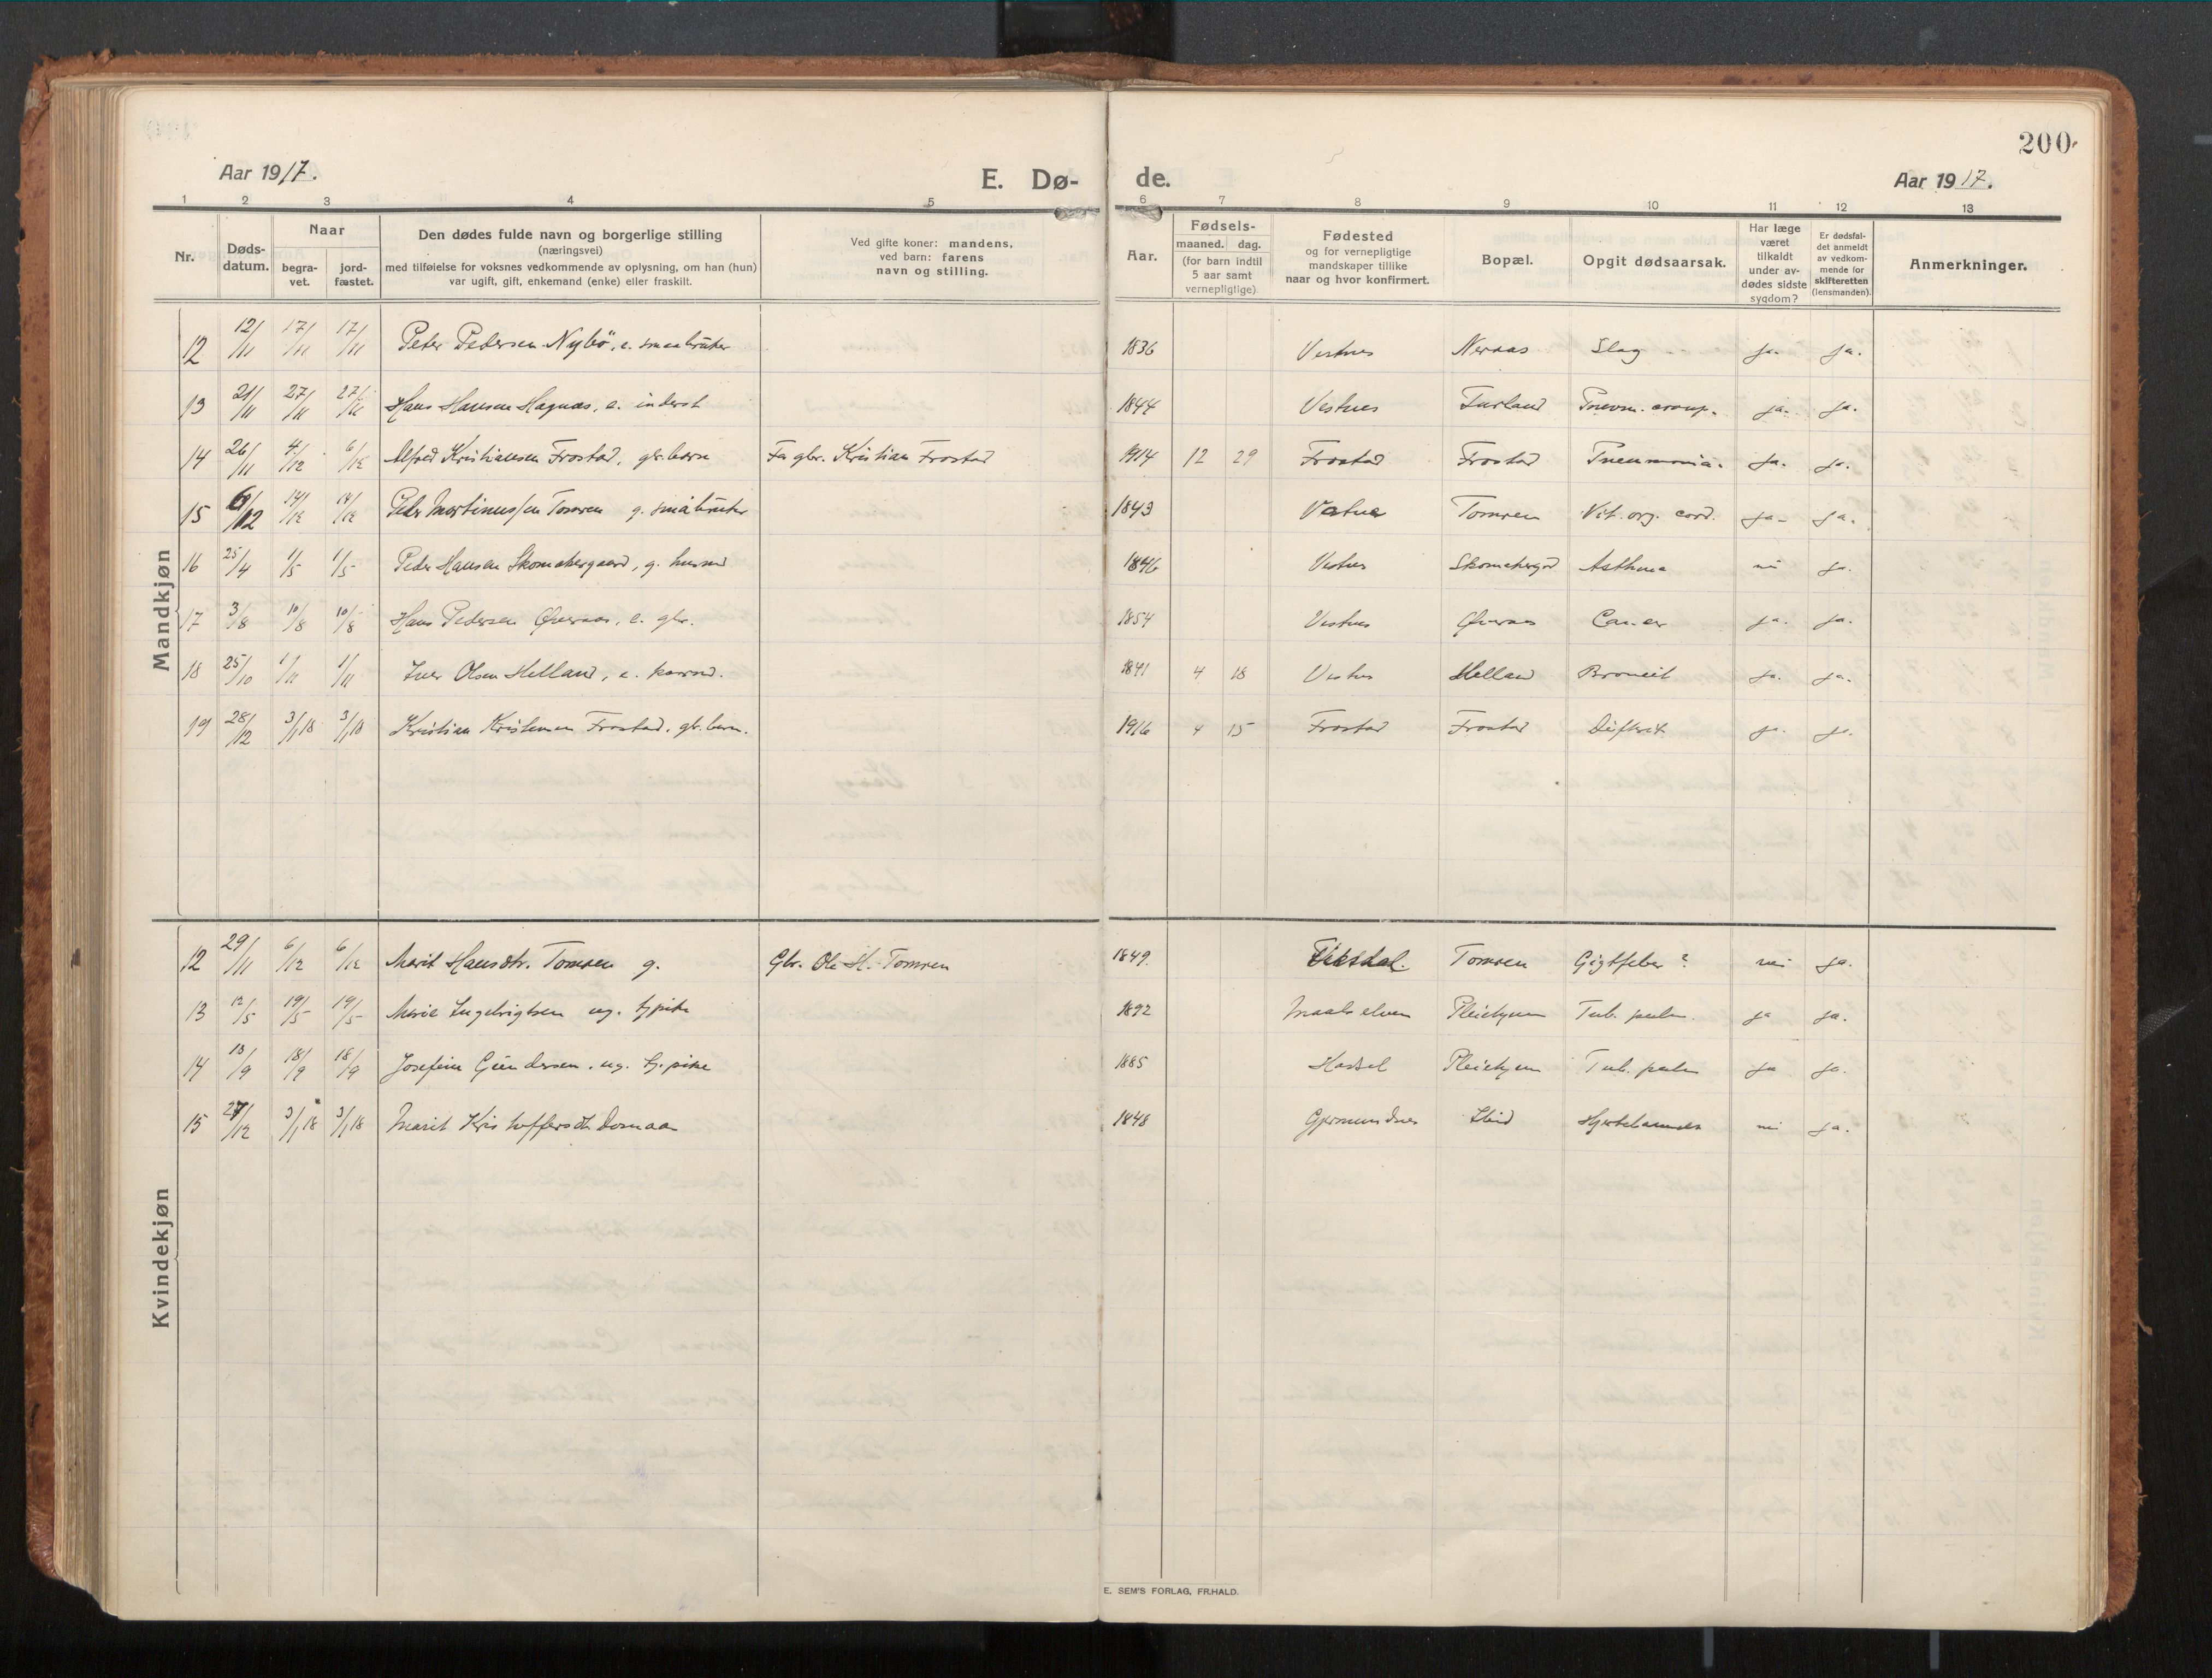 200.
Aar 1917. E. Dø- de. Aar 1917.
1 2 3 4 5 6 7 8 9 10 11 12 13
Nr. Døds-datum. Naar begra-vet. jord-fæstet. Den dødes fulde navn og borgerlige stilling (næringsvei) med tilføielse for voksnes vedkommende av oplysning, om han (hun) var ugift, gift, enkemand (enke) eller fraskilt. Ved gifte koner: mandens, ved barn: farens navn og stilling. Aar. Fødsels- maaned. dag. (for barn indtil 5 aar samt vernepligtige). Fødested og for vernepligtige mandskaper tillike naar og hvor konfirmert. Bopæl. Opgit dødsaarsak. Har læge været tilkaldt under av-dødes sidste sygdom? Er dødsfal-det anmeldt av vedkom-mende for skifteretten (lensmanden). Anmerkninger.
Mandkjøn
12 12/11 17/11 17/11 Peter Pedersen Nybö, e. smaabruker 1836 Vestnes Neraas Slag ja. ja.
13 21/11 27/11 27/11 Hans Hansen Hagnæs, e. inderst 1844 Vestnes Furland Pnevm. croup. ja. ja.
14 26/11 4/12 6/12 Alfred Kristiansen Frostad, gbr. barn Fa gbr. Kristian Frostad 1914 12 29 Frostad Frostad Pneumonia. ja. ja.
15 6/12 14/12 14/12 Peder Martinussen Tomren g. småbruker 1843 Vatne Tomren Vit. org. cord. ja. ja.
16 25/4 1/5 1/5 Peder Hansen Skomakergaard, g. husmd 1846 Vestnes Skomakergrd Asthma nei ja.
17 3/8 10/8 10/8 Hans Pedersen Øveraas, e. gbr. 1854 Vestnes Øveraas Cancer ja. ja.
18 25/10 1/11 1/11 Iver Olsen Helland, e. kaarmd. 1841 4 18 Vestnes Helland Bronkit ja. ja.
19 28/12 3/1 18 3/1 18 Kristian Kristiansen Frostad, gbr. barn. 1916 4 15 Frostad Frostad Difterit ja. ja.
Kvindekjøn
12 29/11 6/12 6/12 Marit Hansdtr. Tomren g. Gbr. Ole H. Tomren 1849. Tomren Gigtfeber? nei ja.
13 12/5 19/5 19/5 Marie Ingebrigtsen ug. tj.pike 1892 Maalselven Pleiehjem Tub. pulm. ja ja.
14 13/9 18/9 18/9 Josefine Gundersen. ug. tj. pike 1885 Hassel Pleiehjem Tub. pulm ja ja.
15 27/12 3/1 18 3/1 18 Marit Kristoffersdtr 1848 Gjermundnes Ibid Hjertelammelse nei ja.
E. SEM'S FORLAG, FR.HALD.